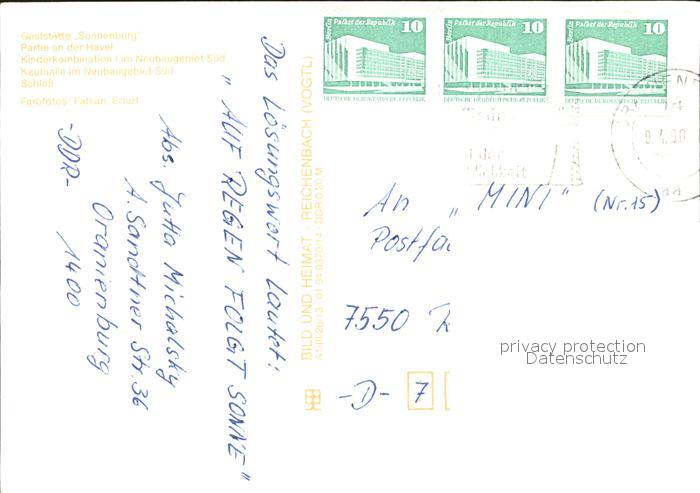 Gaststätte „Sonnenburg"
Partie an der Havel
Kinderkombination I im Neubaugebiet Süd
Kaufhalle im Neubaugebiet Süd
Schloß
Farbfotos: Fabian, Erfurt
Das Lösungswort lautet:
„AUF REGEN FOLGT SONNE"
Abs. Jutta Michalsky
A. Sandtner Str. 36
Oranienburg
1400
-DDR-
BILD UND HEIMAT REICHENBACH (VOGTL)
A1/III/26/13 01 04 0370/14 DDR 0,20 M
Berlin Palast der Republik 10
DEUTSCHE DEMOKRATISCHE REPUBLIK
Berlin Palast der Republik 10
DEUTSCHE DEMOKRATISCHE REPUBLIK
Berlin Palast der Republik 10
DEUTSCHE DEMOKRATISCHE REPUBLIK
9.4.90
An „MINI" (Nr. 15)
Postfa
7550
-D- 7
privacy protection
Datenschutz